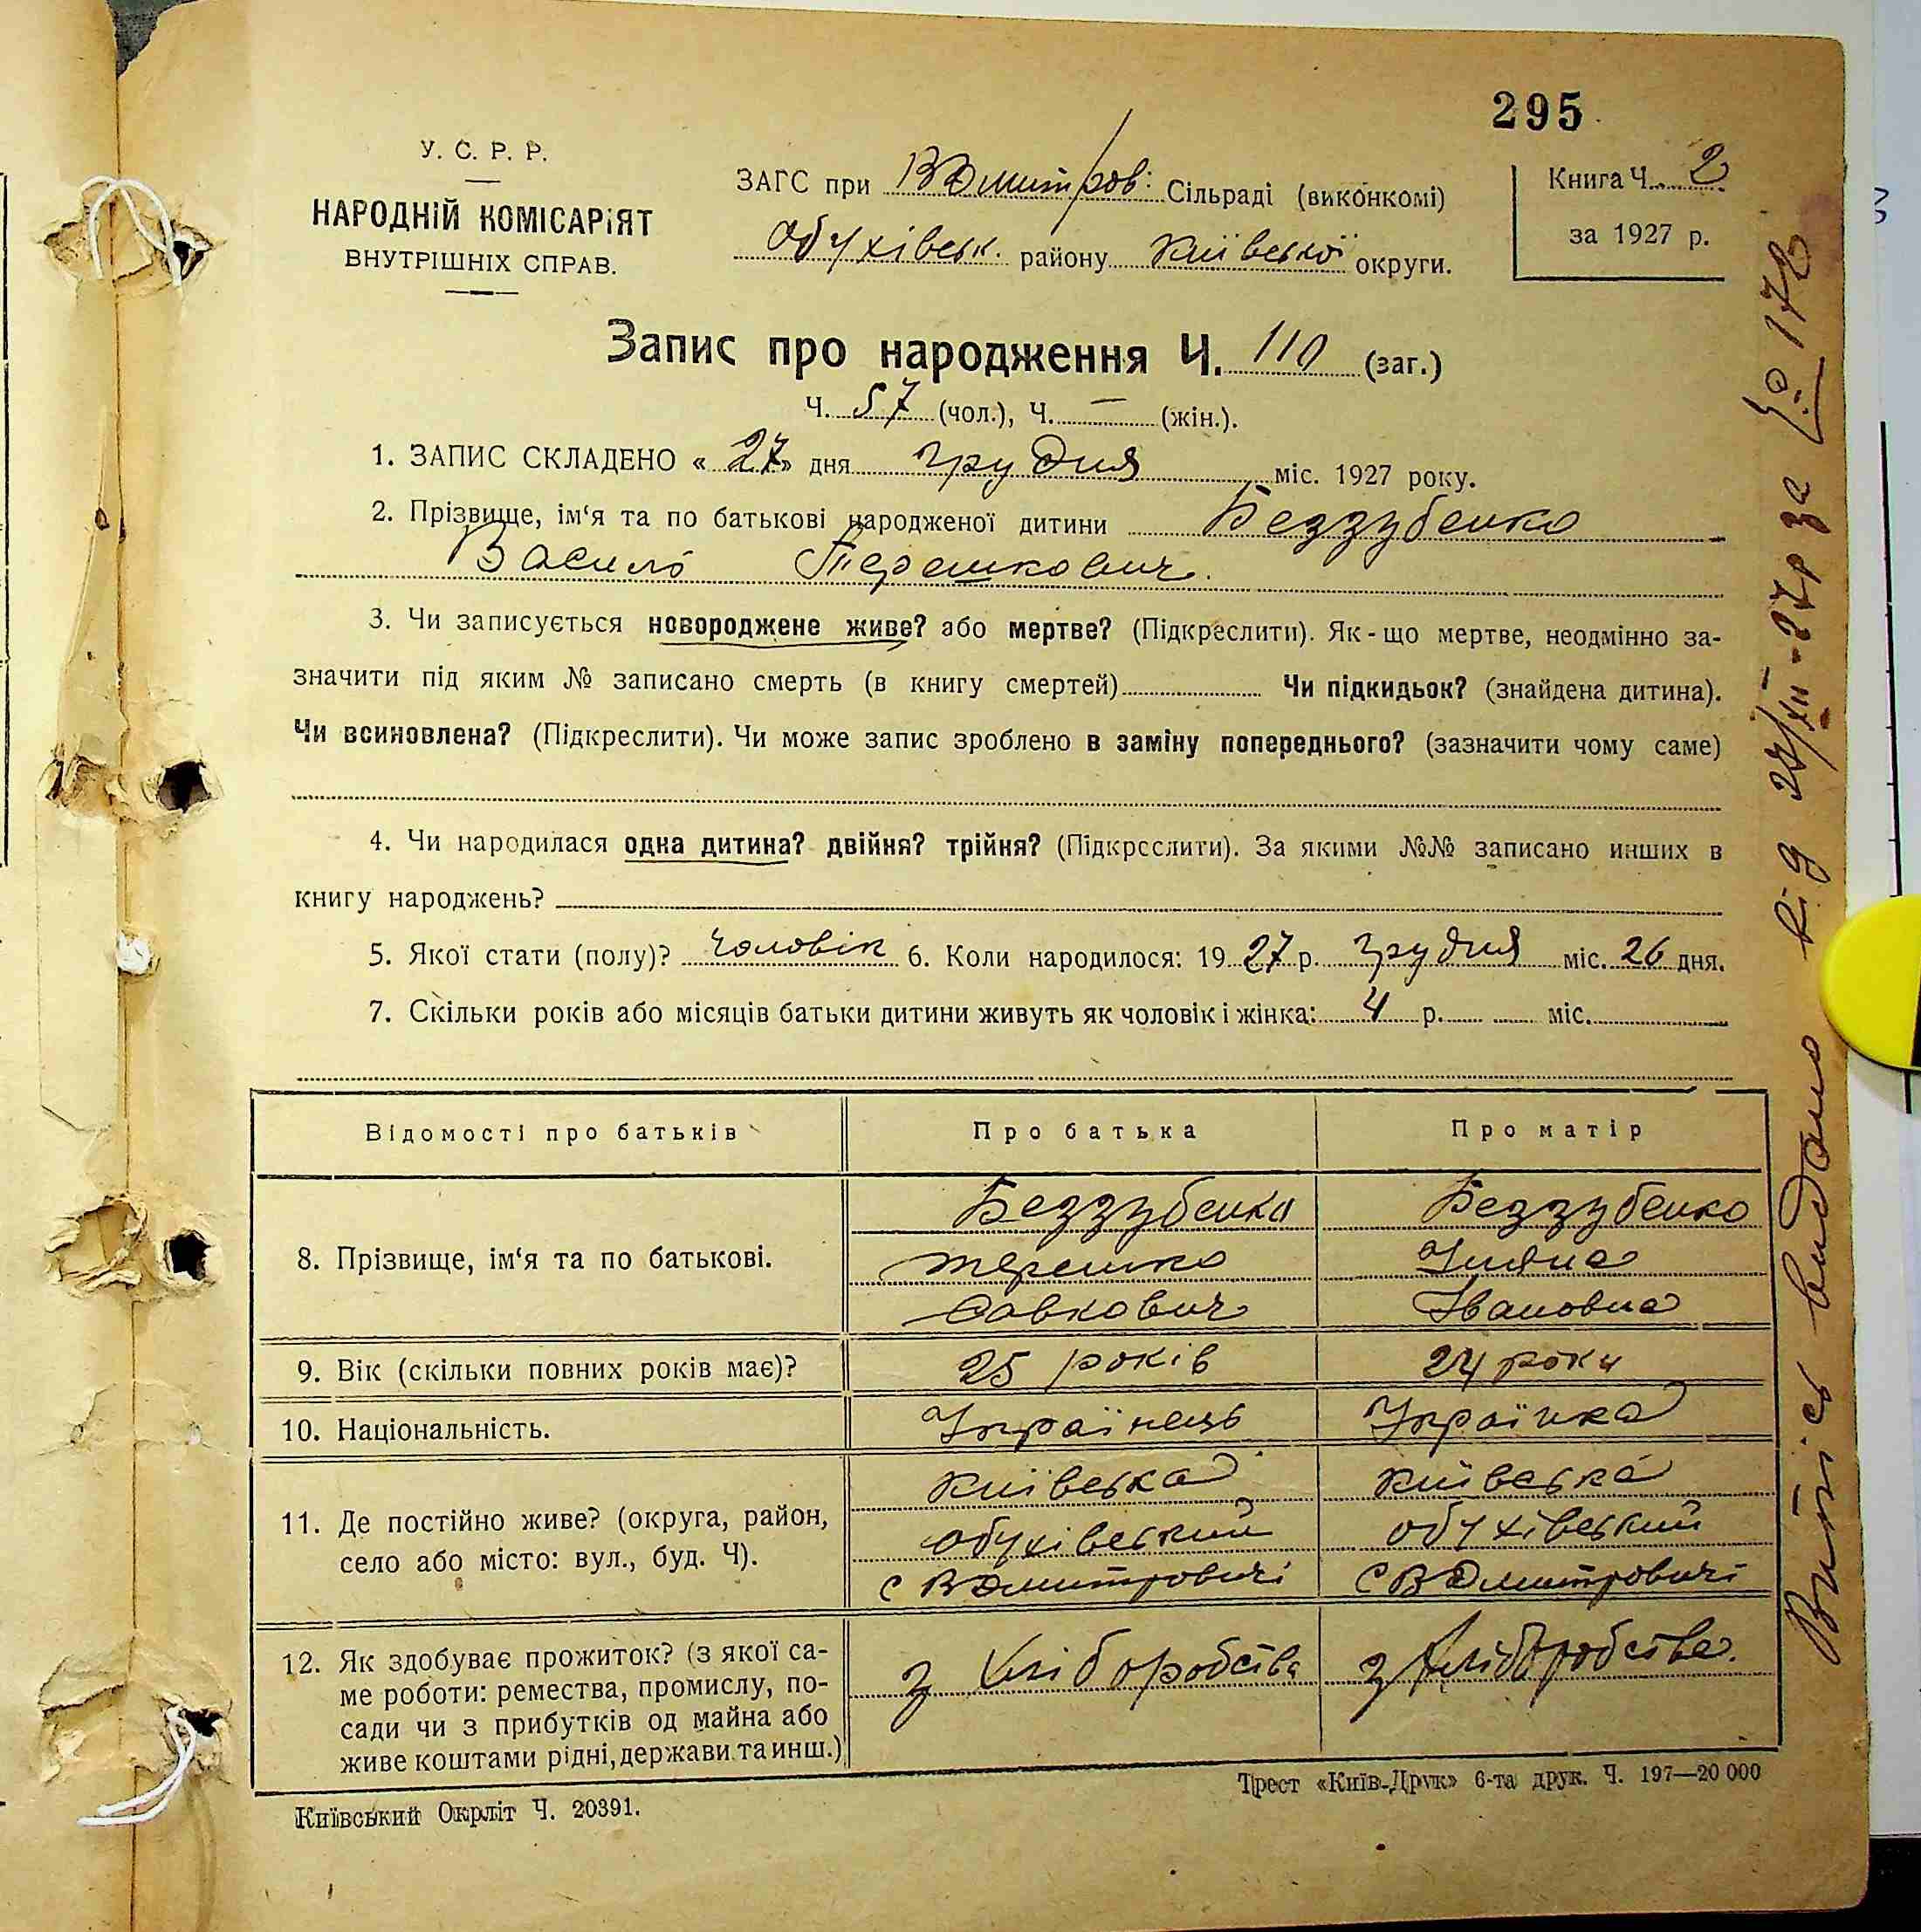 295
У. С. Р. Р.
НАРОДНІЙ КОМІСАРІЯТ
ВНУТРІШНІХ СПРАВ.
ЗАГС при ВДмитров: Сільраді (виконкомі)
Обухівськ. району Київської округи.
Книга Ч. 2
за 1927 р.
Запис про народження Ч. 110 (заг.)
Ч. 57 (чол.), Ч. — (жін.).
1. ЗАПИС СКЛАДЕНО « 27» дня грудня міс. 1927 року.
2. Прізвище, ім‘я та по батькові народженої дитини Беззубенко
Василь Терешкович.
3. Чи записується новороджене живе? або мертве? (Підкреслити). Як-що мертве, неодмінно за-
значити під яким № записано смерть (в книгу смертей) Чи підкидьок? (знайдена дитина).
Чи всиновлена? (Підкреслити). Чи може запис зроблено в заміну попереднього? (зазначити чому саме)
4. Чи народилася одна дитина? двійня? трійня? (Підкреслити). За якими №№ записано инших в
книгу народжень?
5. Якої стати (полу)? чоловік 6. Коли народилося: 1927 р. грудня міс. 26 дня.
7. Скільки років або місяців батьки дитини живуть як чоловік і жінка: 4 р. міс.
Відомості про батьків Про батька Про матір
8. Прізвище, ім‘я та по батькові.
Беззубенко
Терешко
Савкович
Беззубенко
Уляна
Івановна
9. Вік (скільки повних років має)? 25 років 24 роки
10. Національність. Українець Українка
11. Де постійно живе? (округа, район,
село або місто: вул., буд. Ч).
Київська
Обухівський
с ВДмитровичі
Київська
Обухівський
с ВДмитровичі
12. Як здобуває прожиток? (з якої са-
ме роботи: ремества, промислу, по-
сади чи з прибутків од майна або
живе коштами рідні, держави та инш.)
з хліборобства
з хліборобства.
Київський Окрліт Ч. 20391.
Трест «Київ-Друк» 6-та друк. Ч. 197—20 000
Витісь видано від 27/XII-27р за № 172